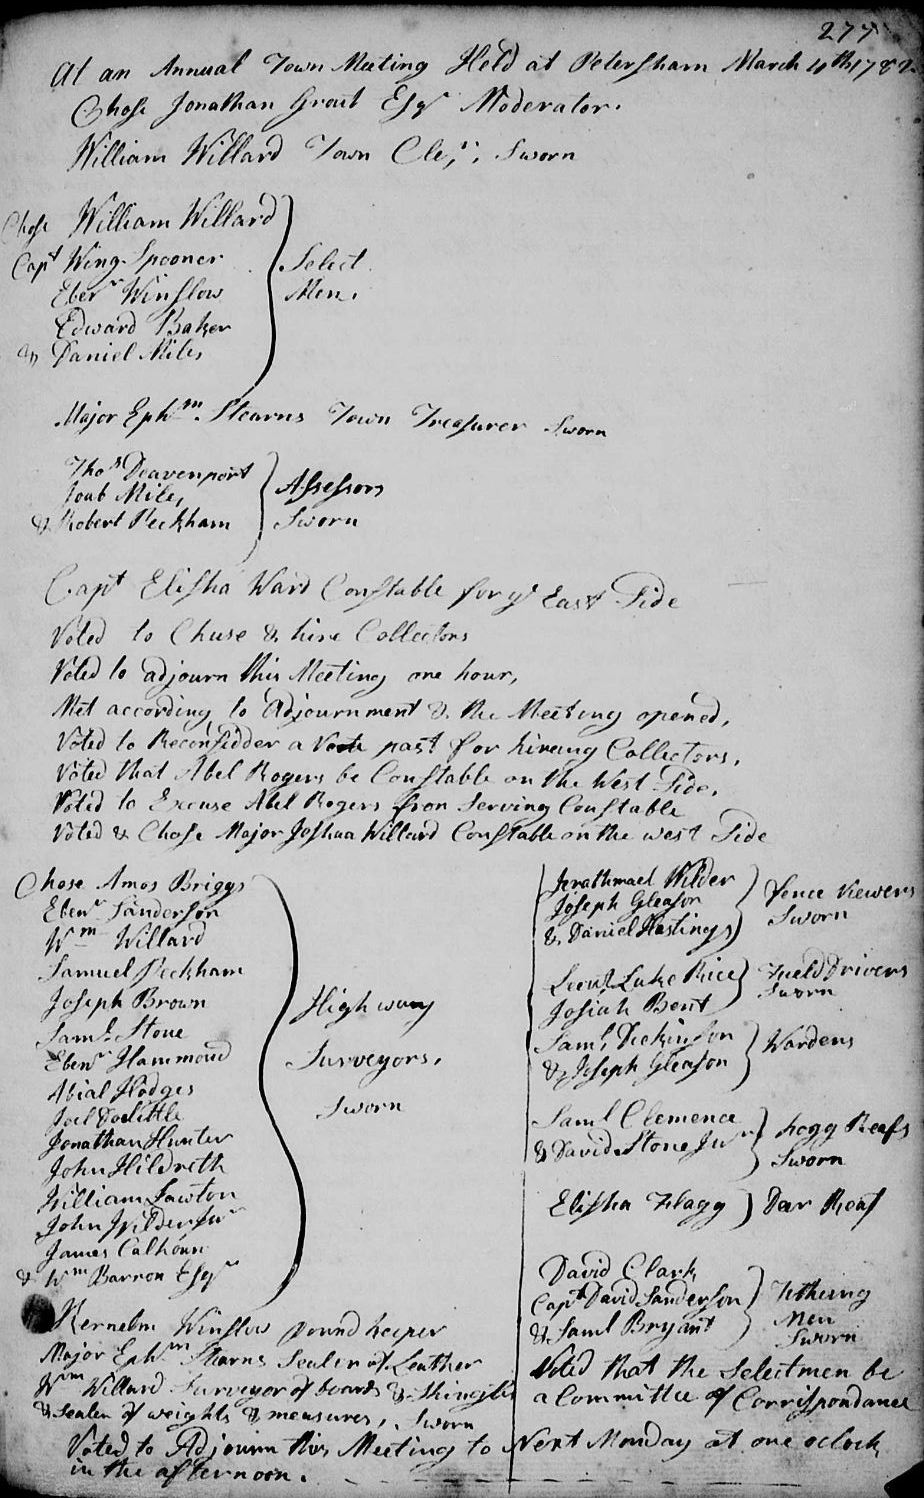 277
At an Annual Town Meeting Held at Petersham March 4th 1782
Chose Jonathan Grout Esqr Moderator.
William Willard Town Cler; Sworn
Chose William Willard
Capt Wing Spooner
Ebenr Winslow
Edward Baker
& Daniel Miles
Select
Men.
Major Ephm. Stearns Town Treasurer Sworn
Thos Deavenport
Joab Miles,
& Robert Peckham
Assessors
Sworn
Capt Elisha Ward Constable for ye East Side
Voted to Chuse & hire Collectors
Voted to adjourn this Meeting one hour,
Met according to Adjournment & the Meeting opened,
Voted to Reconsidder a Vote past for hireing Collectors,
Voted that Abel Rogers be Constable on the West Side,
Voted to Excuse Abel Rogers from Serving Constable
Voted & Chose Major Joshua Willard Constable on the west Side
Chose Amos Briggs
Ebenr Sanderson
Wm Willard
Samuel Peckham
Joseph Brown
Saml. Stone
Ebenr Hammond
Abial Hodges
Joel Doelittle
Jonathan Hunter
John Hildreth
William Lawton
John Wilder Junr
James Calhoun
& Wm Barron Esqr
High way
Surveyors,
Sworn
Kernelm Winslow pound keeper
Major Ephm Stearns Sealer of Leather
Wm Willard Surveyor of boards & Shingils
& Sealer of weights & measures, Sworn
Jerathmael Wilder
Joseph Gleason
& Daniel Hastings
fence Viewers
Sworn
Leout. Luke Rice
Josiah Bent
Field Drivers
Sworn
Saml Dickinson
& Joseph Gleason
Wardens
Saml Clemence
& David Stone Junr
hogg Reafs
Sworn
Elisha Flagg
Dear Reaf
David Clark
Capt David Sanderson
& Saml Bryant
Tetheing
Men
Sworn
Voted that the Selectmen be
a Committee of Corrispondance
Voted to Adjourn this Meeting to Next Monday at one oclock
in the afternoon.